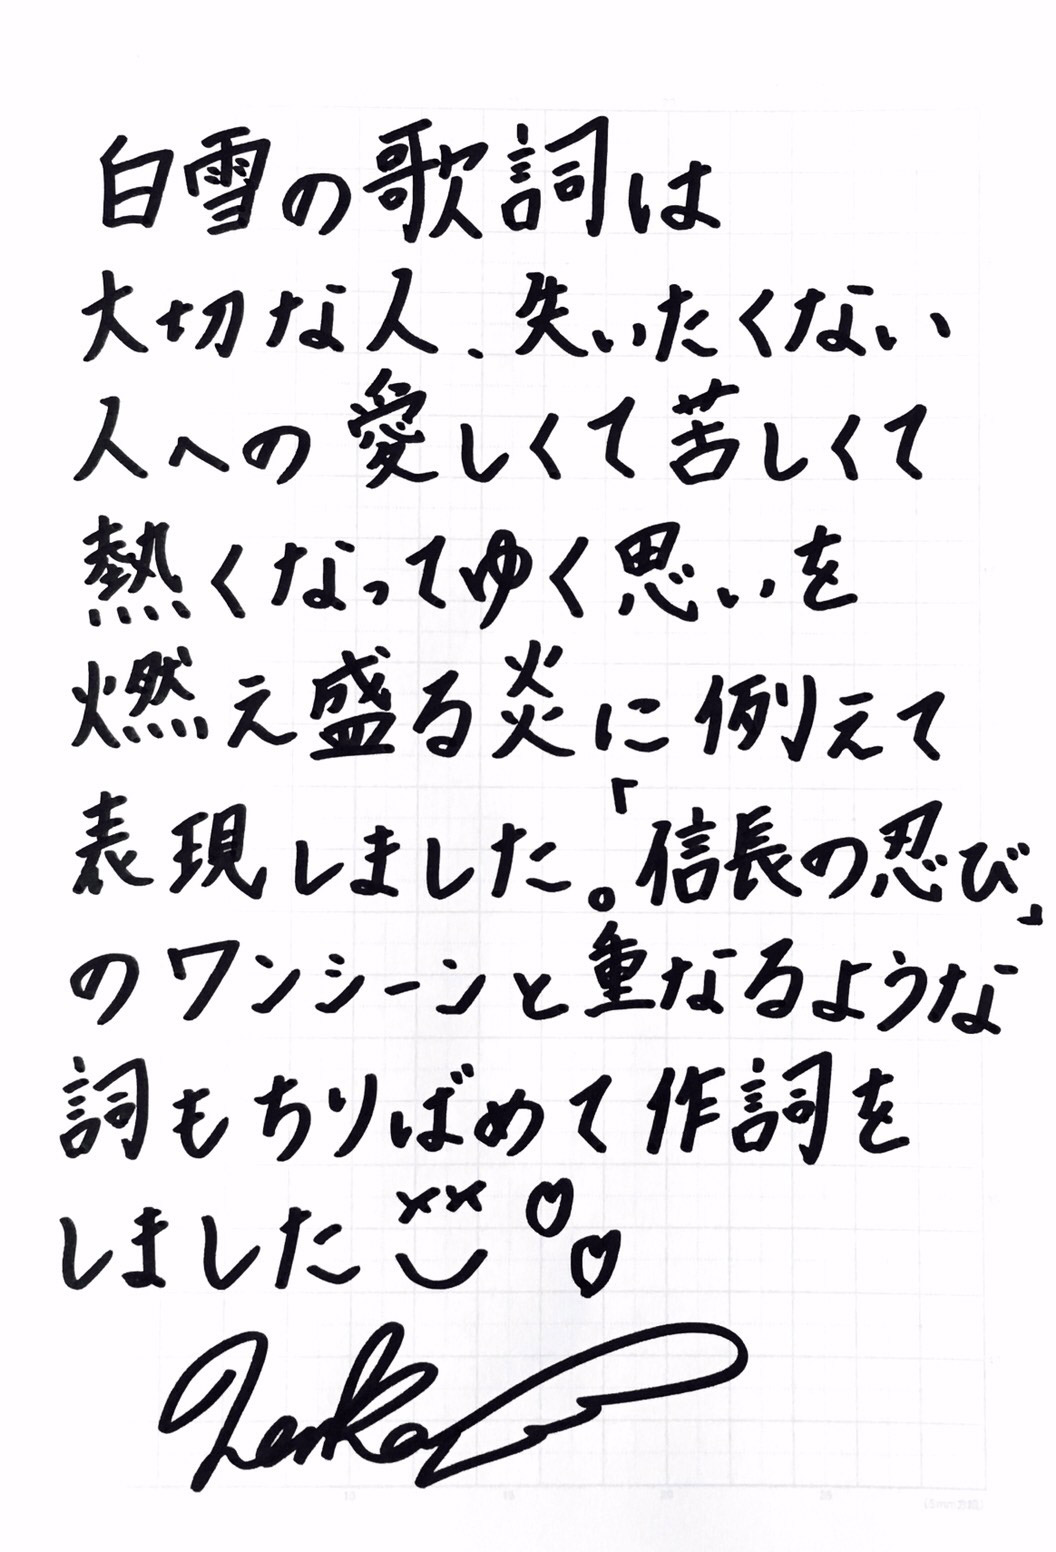 白雪の歌詞は
大切な人、失いたくない
人への愛しくて苦しくて
熱くなってゆく思いを
燃え盛る炎に例えて
表現しました。「信長の忍び」
のワンシーンと重なるような
詞もちりばめて作詞を
しました